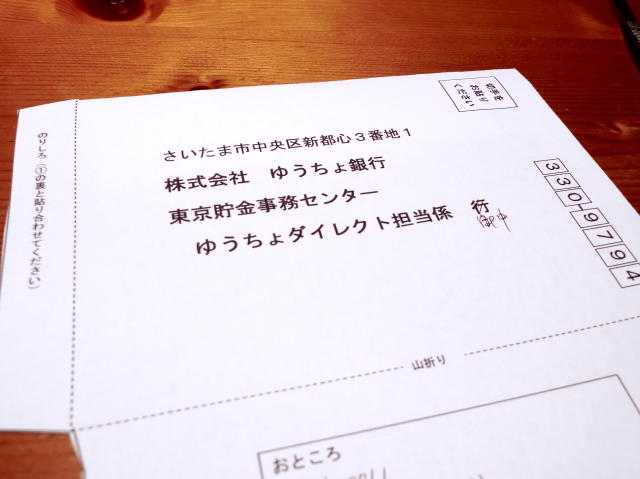 切手を
お貼り
ください
330-9794
さいたま市中央区新都心3番地1
株式会社 ゆうちょ銀行
東京貯金事務センター
ゆうちょダイレクト担当係 行
御中
のりしろ（①の裏と貼り合わせてください）
山折り
おところ